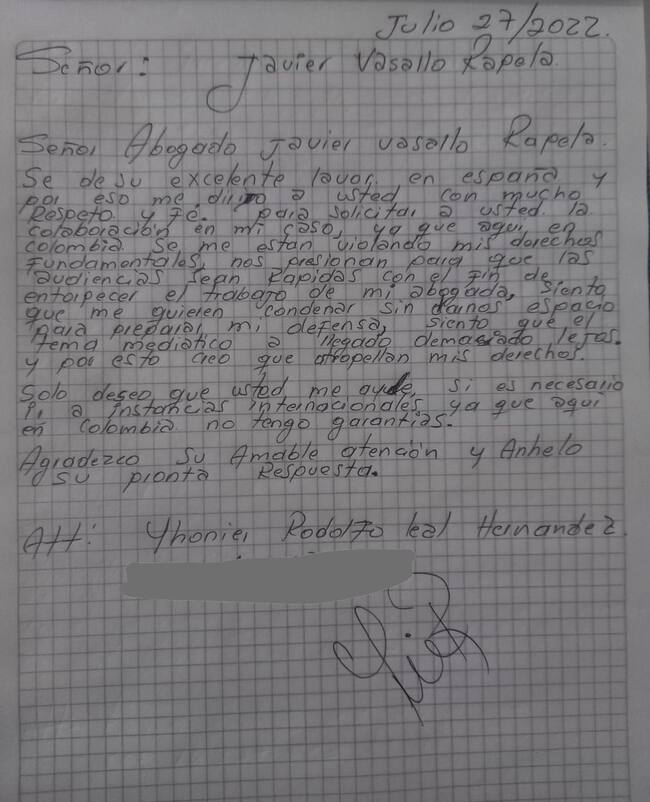 Julio 27/2022.
Señor: Javier Vasallo Rapela.
Señor Abogado Javier vasallo Rapela.
Se de su excelente lavor, en españa y
por eso me dirijo a usted con mucho
Respeto y Fé. para solicitar a usted la
colaboración en mi caso, ya que aqui en
colombia se me estan violando mis derechos
fundamentales, nos presionan para que las
audiencias sean Rapidas con el fin de
entorpecer el trabajo de mi abogada, siento
que me quieren condenar sin darnos espacio
para preparar mi defensa, siento que el
tema mediatico a llegado demasiado lejos.
y por esto creo que atropellan mis derechos.
Solo deseo que usted me ayude, si es necesario
ir a instancias internacionales, ya que aqui
en colombia no tengo garantias.
Agradezco su Amable atención y Anhelo
su pronta Respuesta.
Att: Yhonier Rodolfo leal Hernandez.